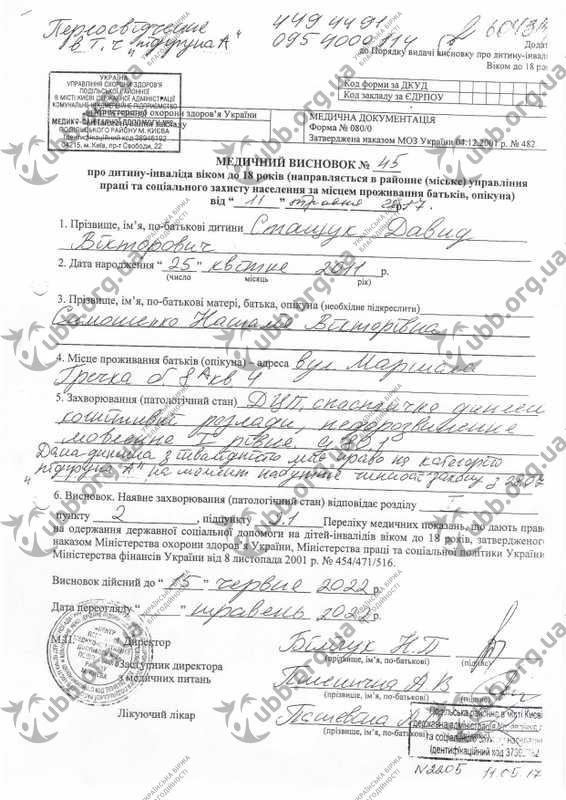 Переосвідчення
в т.ч. "підгрупа А"
449 4491
095 4000 114
Додат
до Порядку видачі висновку про дитину-інвалі
Віком до 18 рок
УКРАЇНА
УПРАВЛІННЯ ОХОРОНИ ЗДОРОВ'Я
ПОДІЛЬСЬКОЇ РАЙОННОЇ
В МІСТІ КИЄВІ ДЕРЖАВНОЇ АДМІНІСТРАЦІЇ
КОМУНАЛЬНЕ НЕКОМЕРЦІЙНЕ ПІДПРИЄМСТВО
Міністерство охорони здоров'я України
ПОДІЛЬСЬКОГО РАЙОНУ М. КИЄВА
04215, м. Київ, пр-т Свободи, 22
Код форми за ДКУД
Код закладу за ЄДРПОУ
МЕДИЧНА ДОКУМЕНТАЦІЯ
Форма № 080/0
Затверджена наказом МОЗ України 04.12.2001 р. № 482
МЕДИЧНИЙ ВИСНОВОК № 45
про дитину-інваліда віком до 18 років (направляється в районне (міське) управління
праці та соціального захисту населення за місцем проживання батьків, опікуна)
від " 11 " травня 2017р.
1. Прізвище, ім'я, по-батькові дитини Стащук Давид
Вікторович
2. Дата народження " 25 " квітня 2011 р.
(число місяць рік)
3. Прізвище, ім'я, по-батькові матері, батька, опікуна (необхідне підкреслити)
Самошенко Наталія Вікторівна
4. Місце проживання батьків (опікуна) – адреса вул Маршала
Гречка б 8А кв 4
5. Захворювання (патологічний стан) ДЦП, спастична
когнітивні розлади, недорозвинення
мовлення I рівня.
Дана дитина з інвалідністю має право на категорію
"підгрупа А" на момент набуття чинності закону з
6. Висновок. Наявне захворювання (патологічний стан) відповідає розділу I
пункту 2 , підпункту 2.1 Переліку медичних показань, що дають право
на одержання державної соціальної допомоги на дітей-інвалідів віком до 18 років, затвердженого
наказом Міністерства охорони здоров'я України, Міністерства праці та соціальної політики України
Міністерства фінансів України від 8 листопада 2001 р. № 454/471/516.
Висновок дійсний до " 15 " червня 2022 р.
Дата перегляду " " травень 2022 р.
М.П. Директор
(прізвище, ім'я, по-батькові) (підпис)
Заступник директора
з медичних питань
(прізвище, ім'я, по-батькові) (підпис)
Лікуючий лікар
(прізвище, ім'я, по-батькові)
Подільська районна в місті Києві
державна адміністрація
та соціального
Ідентифікаційний код
N2205 11.05.17
ubb.org.ua
УКРАЇНСЬКА БІРЖА
БЛАГОДІЙНОСТІ